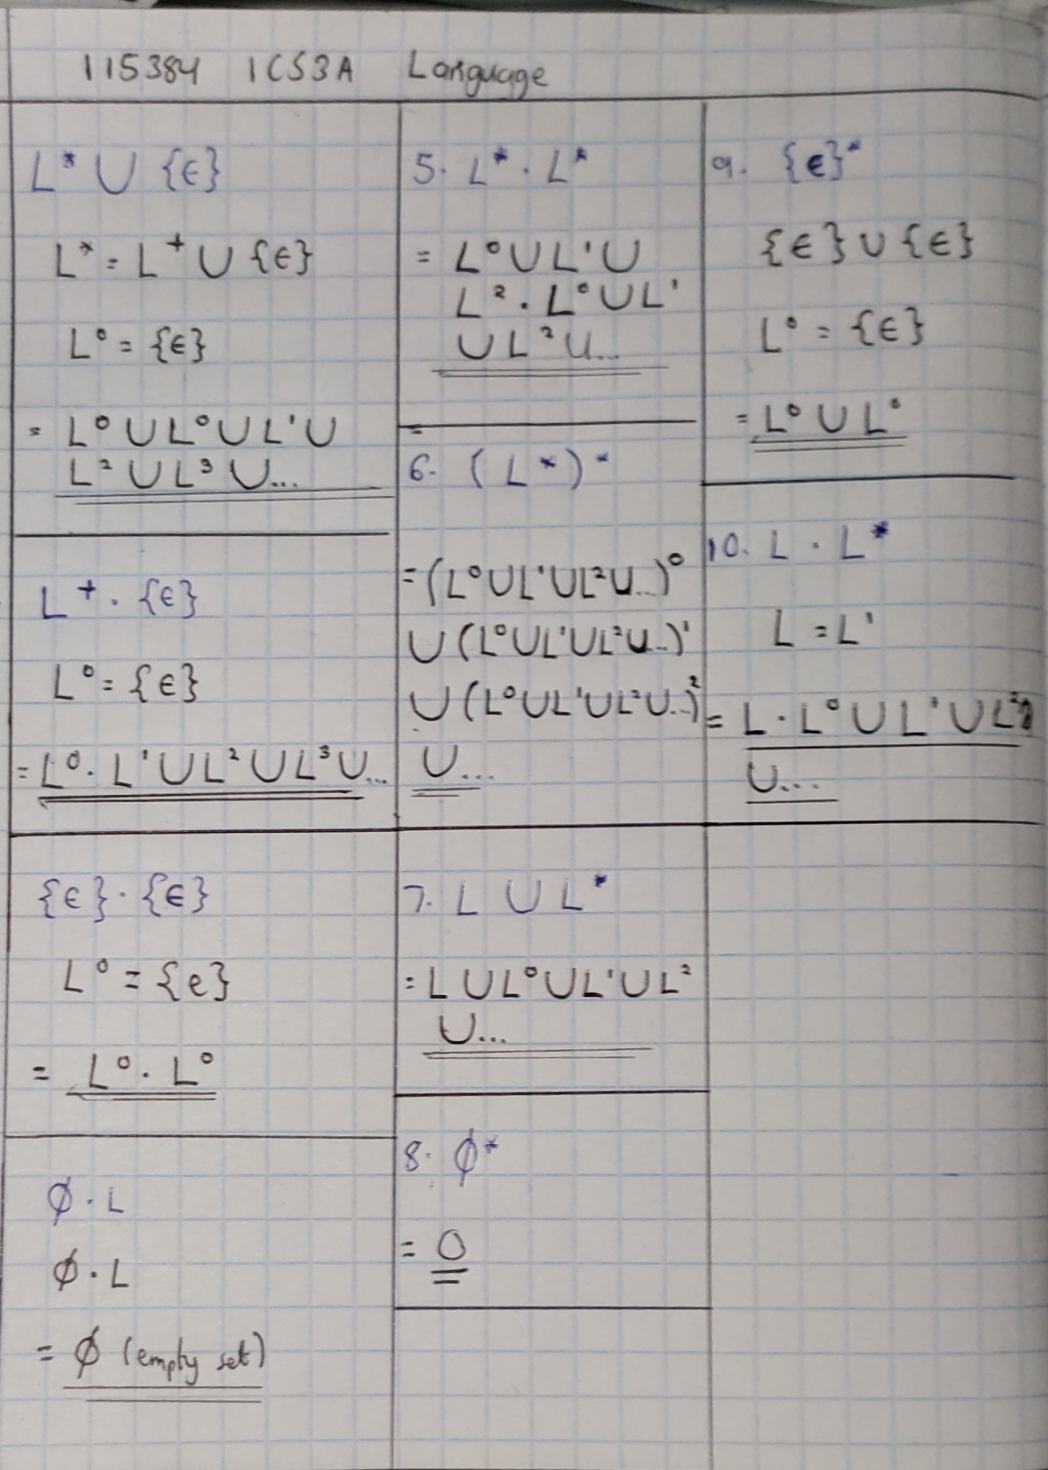 115384 ICS3A Language
L* ∪ {ϵ}
L* = L⁺ ∪ {ϵ}
L⁰ = {ϵ}
= L⁰ ∪ L⁰ ∪ L¹ ∪
L² ∪ L³ ∪...
L⁺ . {ϵ}
L⁰ = {ϵ}
= L⁰ . L¹ ∪ L² ∪ L³ ∪...
{ϵ} . {ϵ}
L⁰ = {e}
= L⁰ . L⁰
ϕ . L
ϕ . L
= ϕ (empty set)
5. L* . L*
= L⁰ ∪ L¹ ∪
L² . L⁰ ∪ L¹
∪ L² ∪...
=
6. (L*)*
= (L⁰ ∪ L¹ ∪ L² ∪...)⁰
∪ (L⁰ ∪ L¹ ∪ L² ∪...)¹
∪ (L⁰ ∪ L¹ ∪ L² ∪...)²
∪...
7. L ∪ L*
= L ∪ L⁰ ∪ L¹ ∪ L²
∪...
8. ϕ*
= 0
9. {ϵ}*
{ϵ} ∪ {ϵ}
L⁰ = {ϵ}
= L⁰ ∪ L⁰
10. L . L*
L = L¹
= L . L⁰ ∪ L¹ ∪ L²
∪...